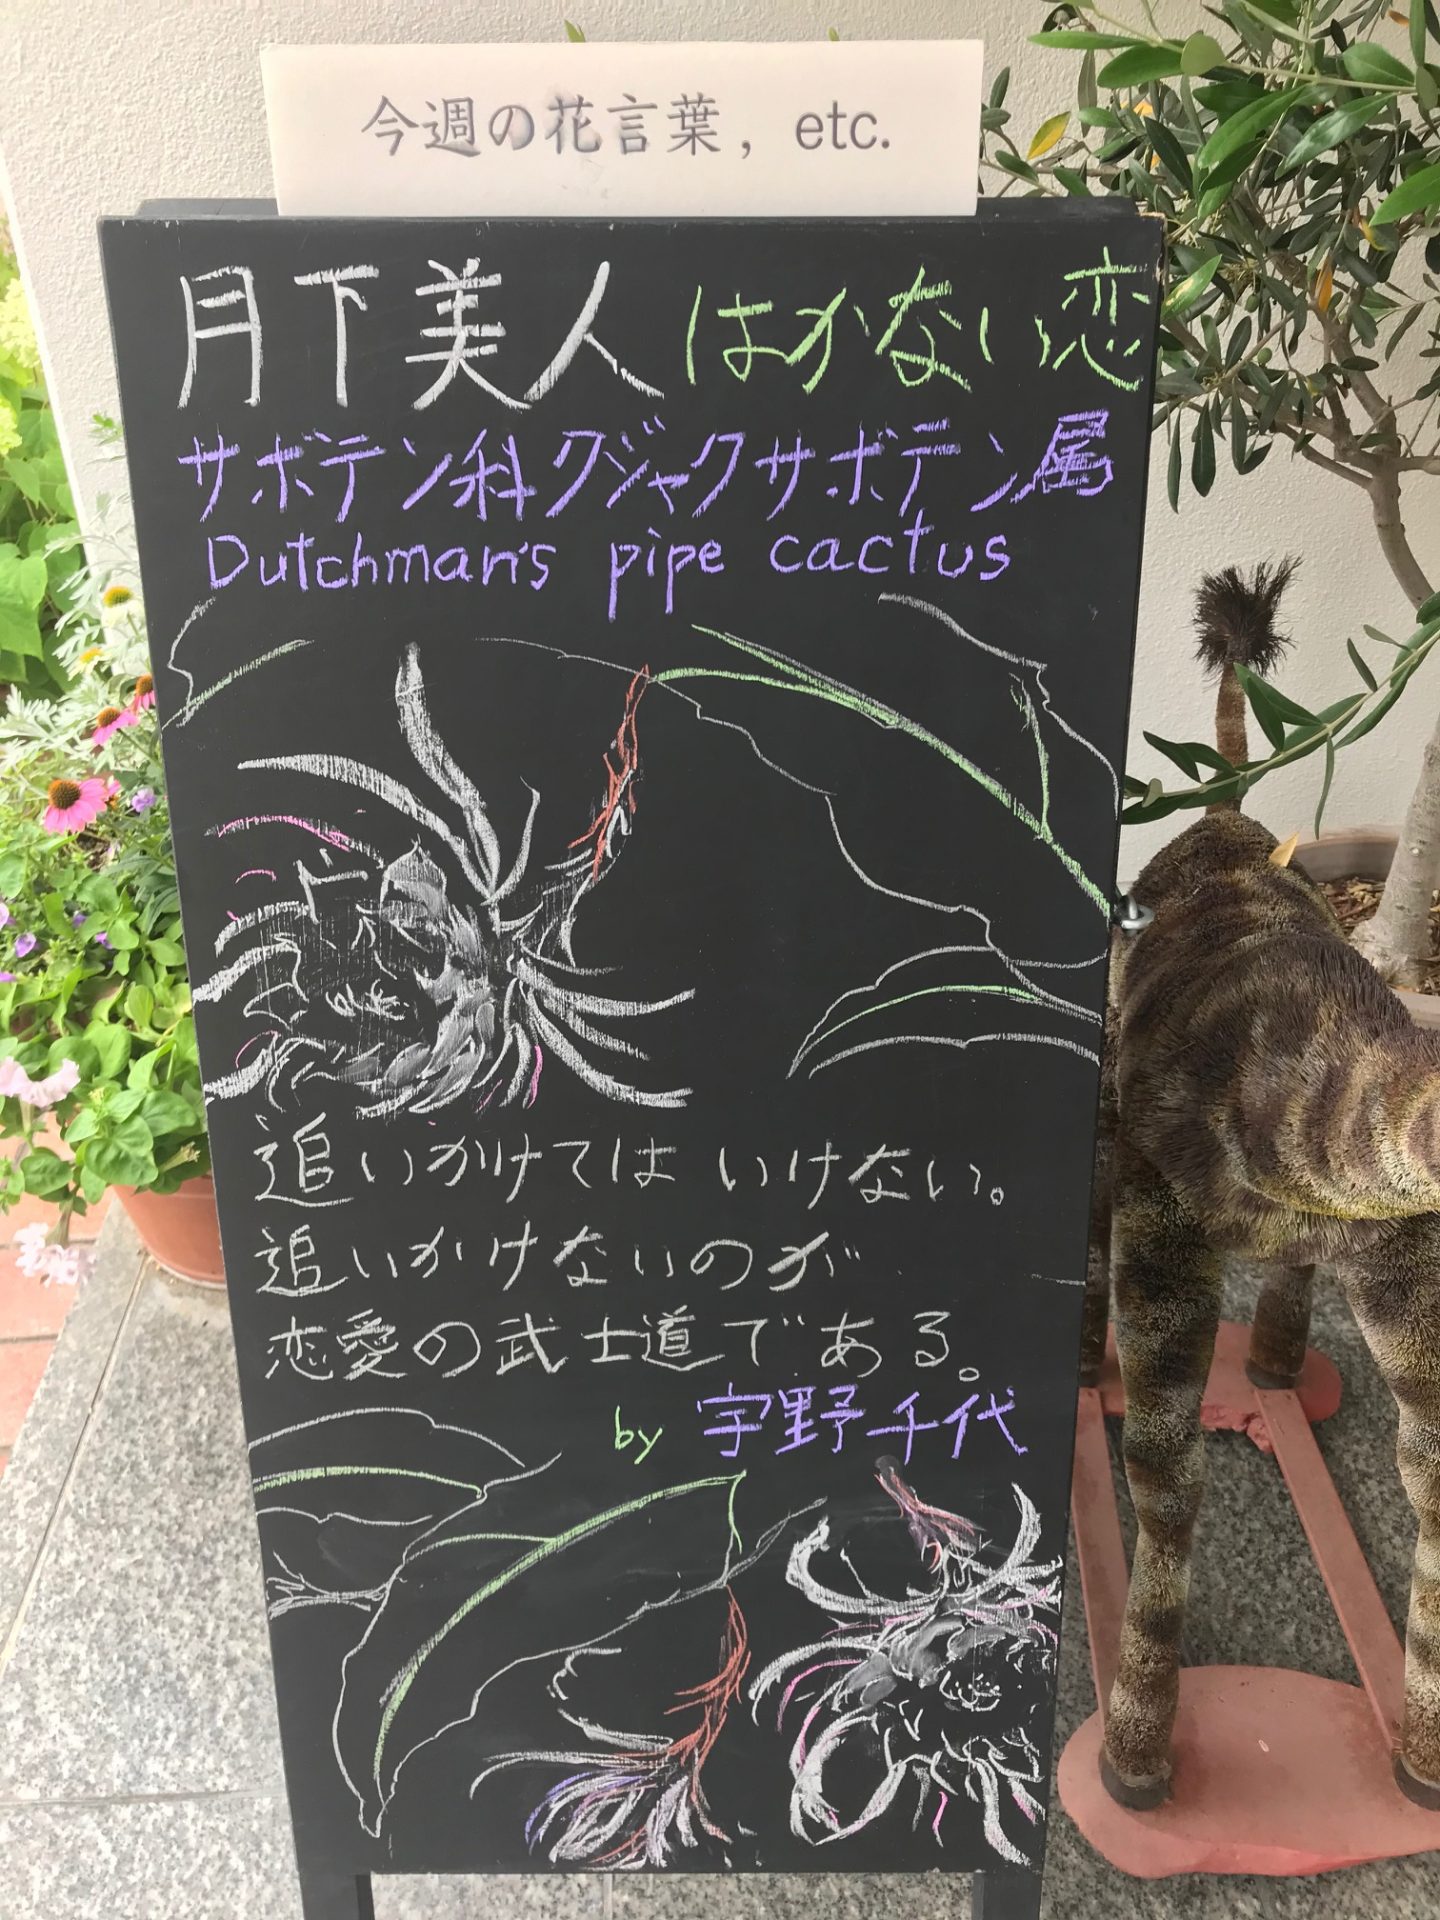 今週の花言葉，etc.
月下美人 はかない恋
サボテン科クジャクサボテン属
Dutchman's pipe cactus
追いかけてはいけない。
追いかけないのが
恋愛の武士道である。
by 宇野千代